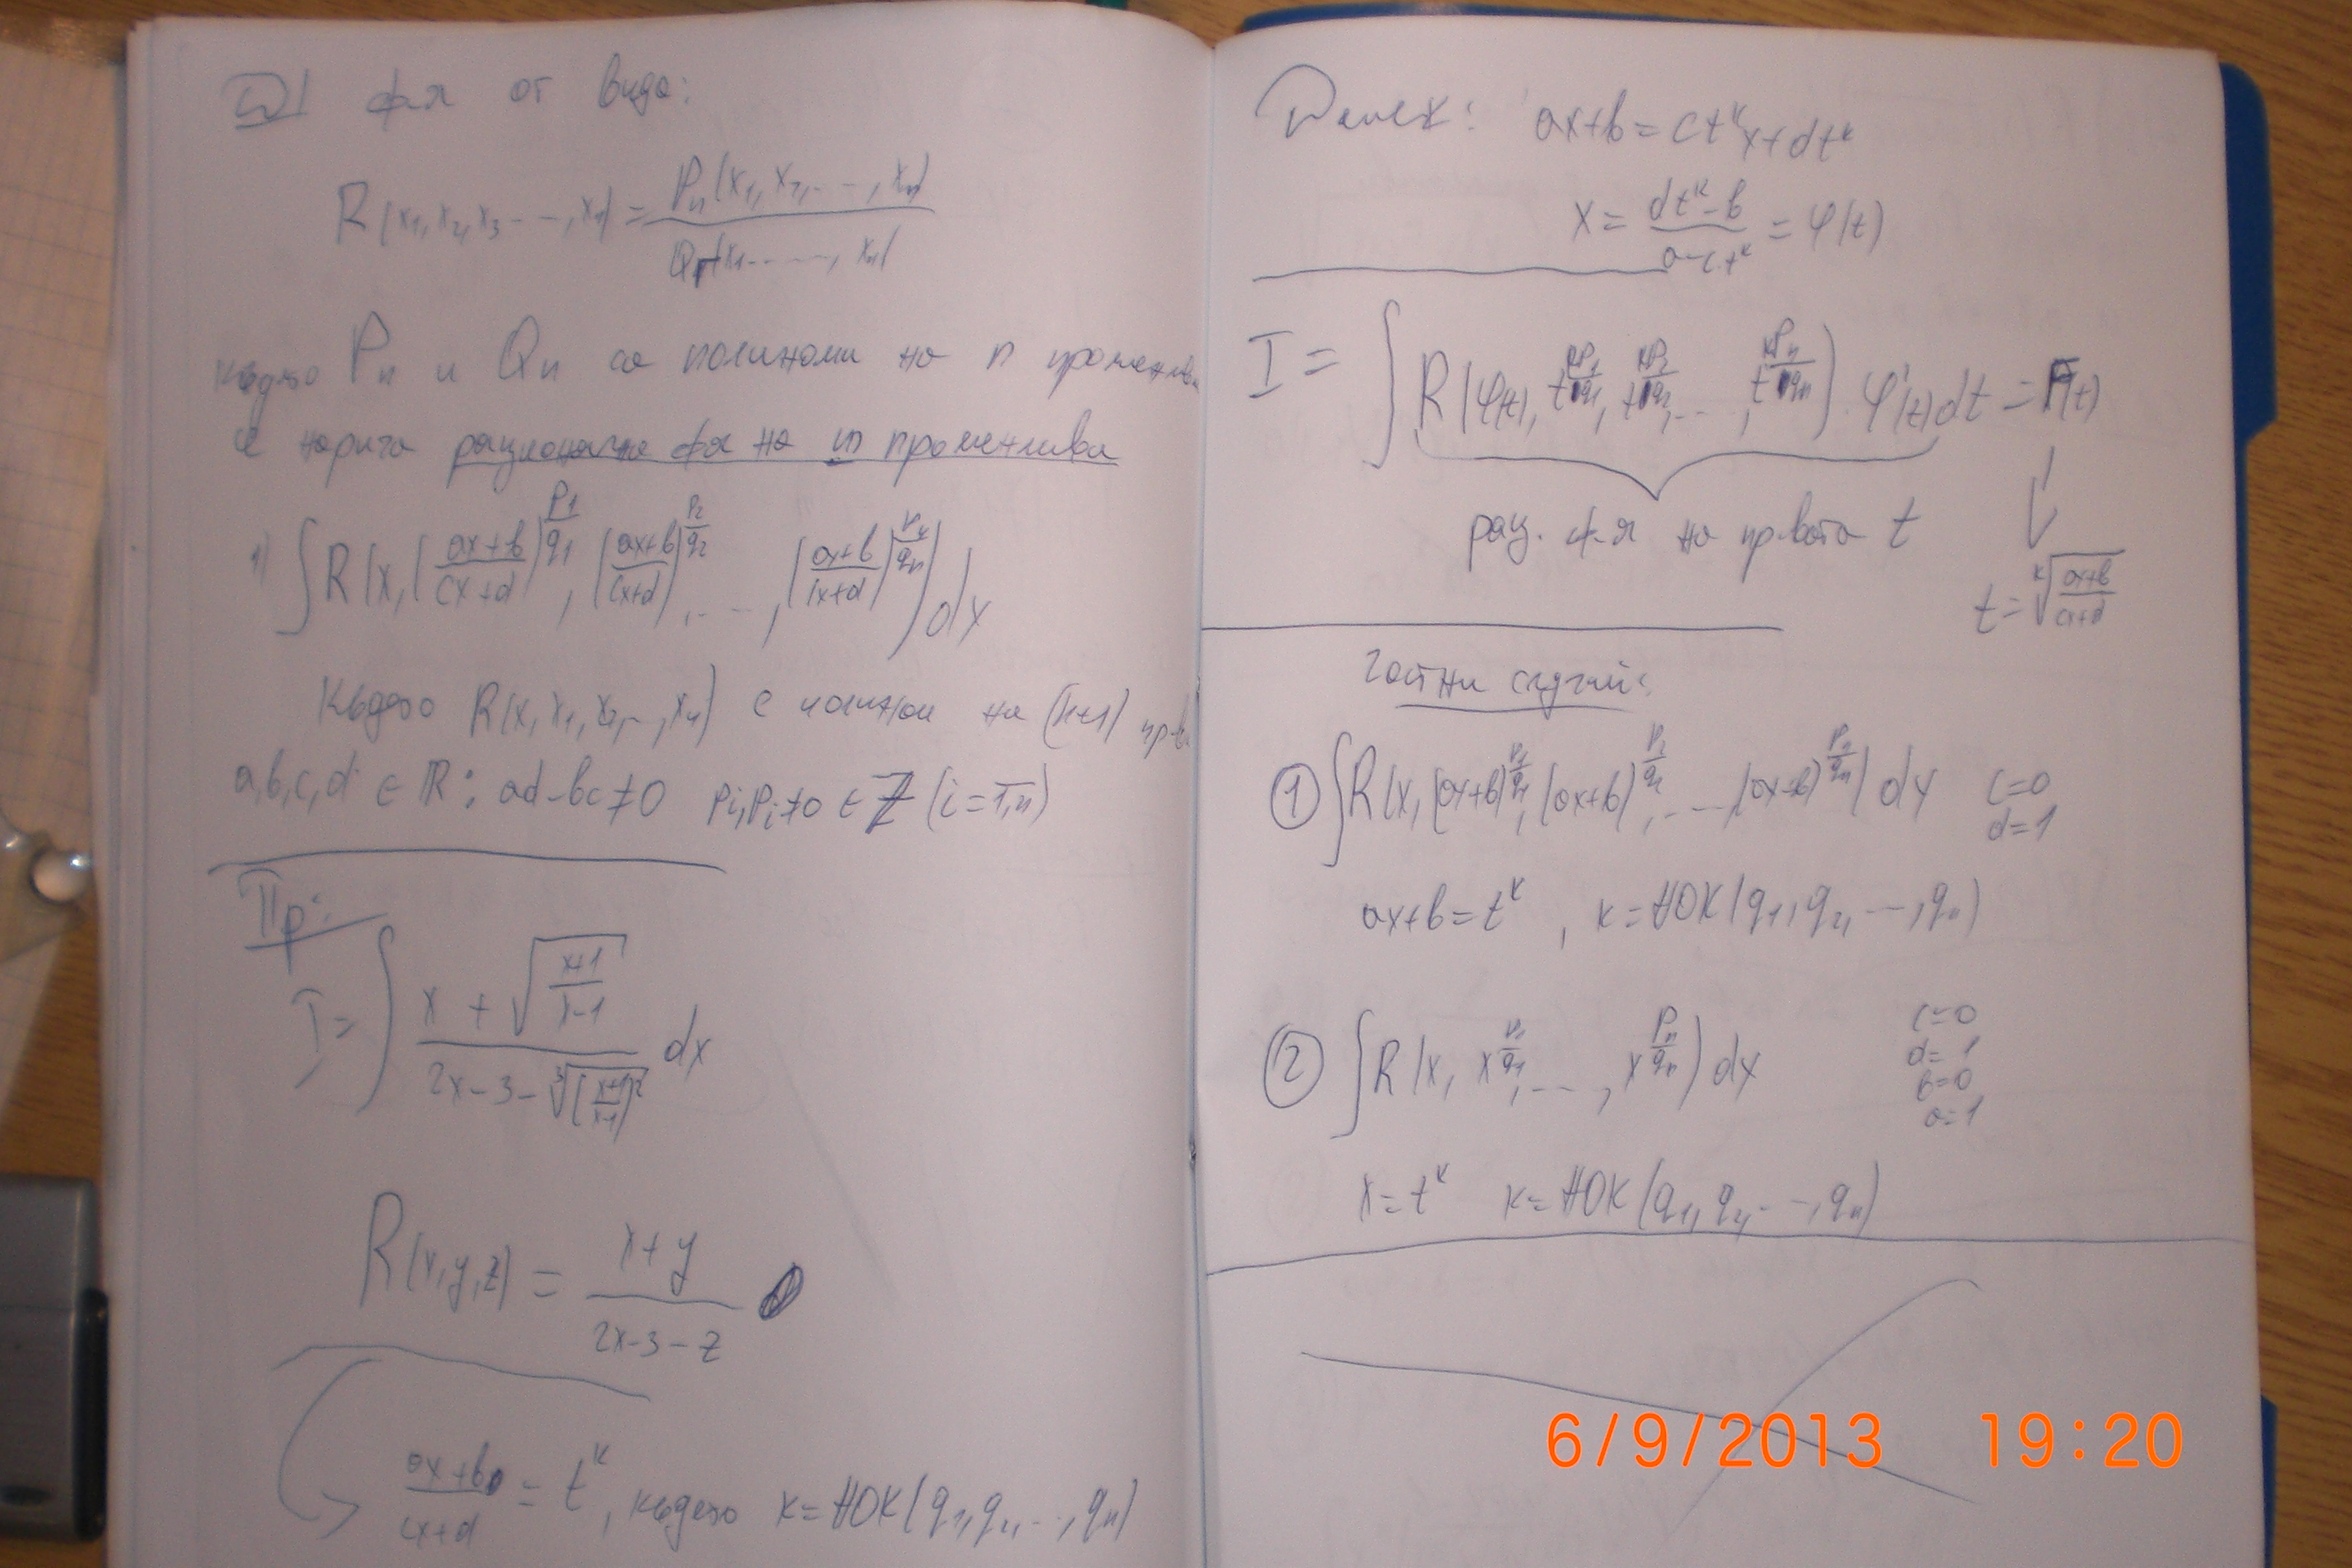 ф-я от вида:
R(x₁, x₂, x₃ - -, xₙ) = Pₙ(x₁, x₂, - -, xₙ) / Qₙ(x₁ - - - -, xₙ)
където Pₙ и Qₙ са полиноми на n променливи
се нарича рационална ф-я на n променливи
1) ∫R(x, ((ax+b)/(cx+d))^(p₁/q₁), ((ax+b)/(cx+d))^(p₂/q₂), - -, ((ax+b)/(cx+d))^(pₙ/qₙ)) dx
Където R(x, x₁, x₂, - -, xₙ) е полином на (n+1)
a, b, c, d ∈ ℝ : ad-bc≠0 pᵢ, pᵢ≠0 ∈ Z (i=1,n)
Пр:
I = ∫ (x + √((x+1)/(x-1))) / (2x-3-∛(((x+1)/(x-1))²)) dx
R(x,y,z) = (x+y) / (2x-3-z)
(ax+b)/(cx+d) = t^k, където k = НОК(q₁, q₂, - -, qₙ)
ax+b = ct^k x+dt^k
x = (dt^k-b)/(a-c.t^k) = φ(t)
I = ∫R(φ(t), t^(kp₁/q₁), t^(kp₂/q₂), - -, t^(kpₙ/qₙ)) . φ'(t)dt = F(t)
рац. ф-я на пр-вата t
t = ᵏ√((ax+b)/(cx+d))
Частни случай:
① ∫R(x, (ax+b)^(p₁/q₁), (ax+b)^(p₂/q₂), - -, (ax+b)^(pₙ/qₙ)) dx c=0
d=1
ax+b = t^k , k = НОК(q₁, q₂, - -, qₙ)
② ∫R(x, x^(p₁/q₁), - -, x^(pₙ/qₙ)) dx c=0
d=1
b=0
a=1
x = t^k k = НОК(q₁, q₂, - -, qₙ)
6/9/2013 19:20